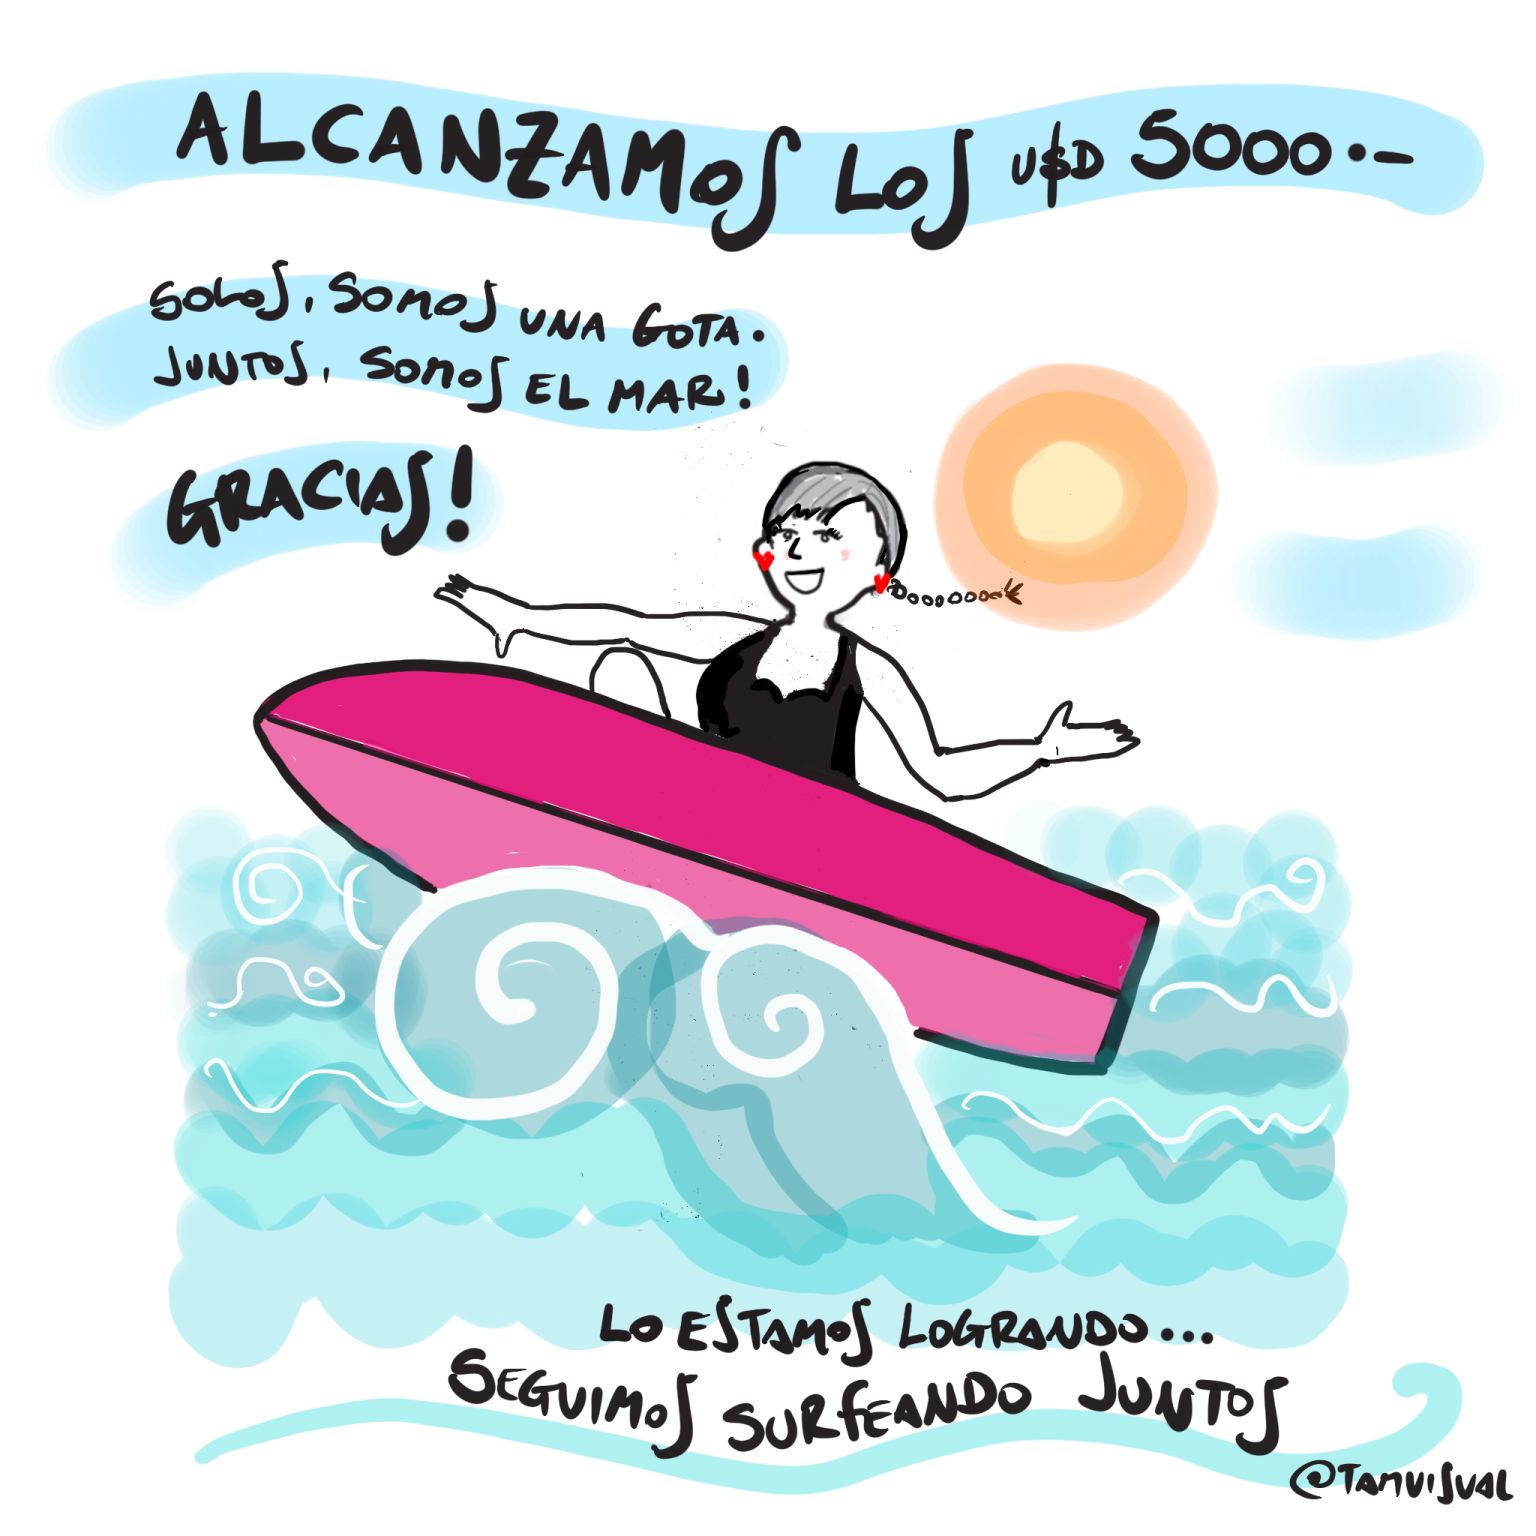 ALCANZAMOS LOS U$D 5000.-
SOLOS, SOMOS UNA GOTA.
JUNTOS, SOMOS EL MAR!
GRACIAS!
LO ESTAMOS LOGRANDO...
SEGUIMOS SURFEANDO JUNTOS
@TAMVISUAL